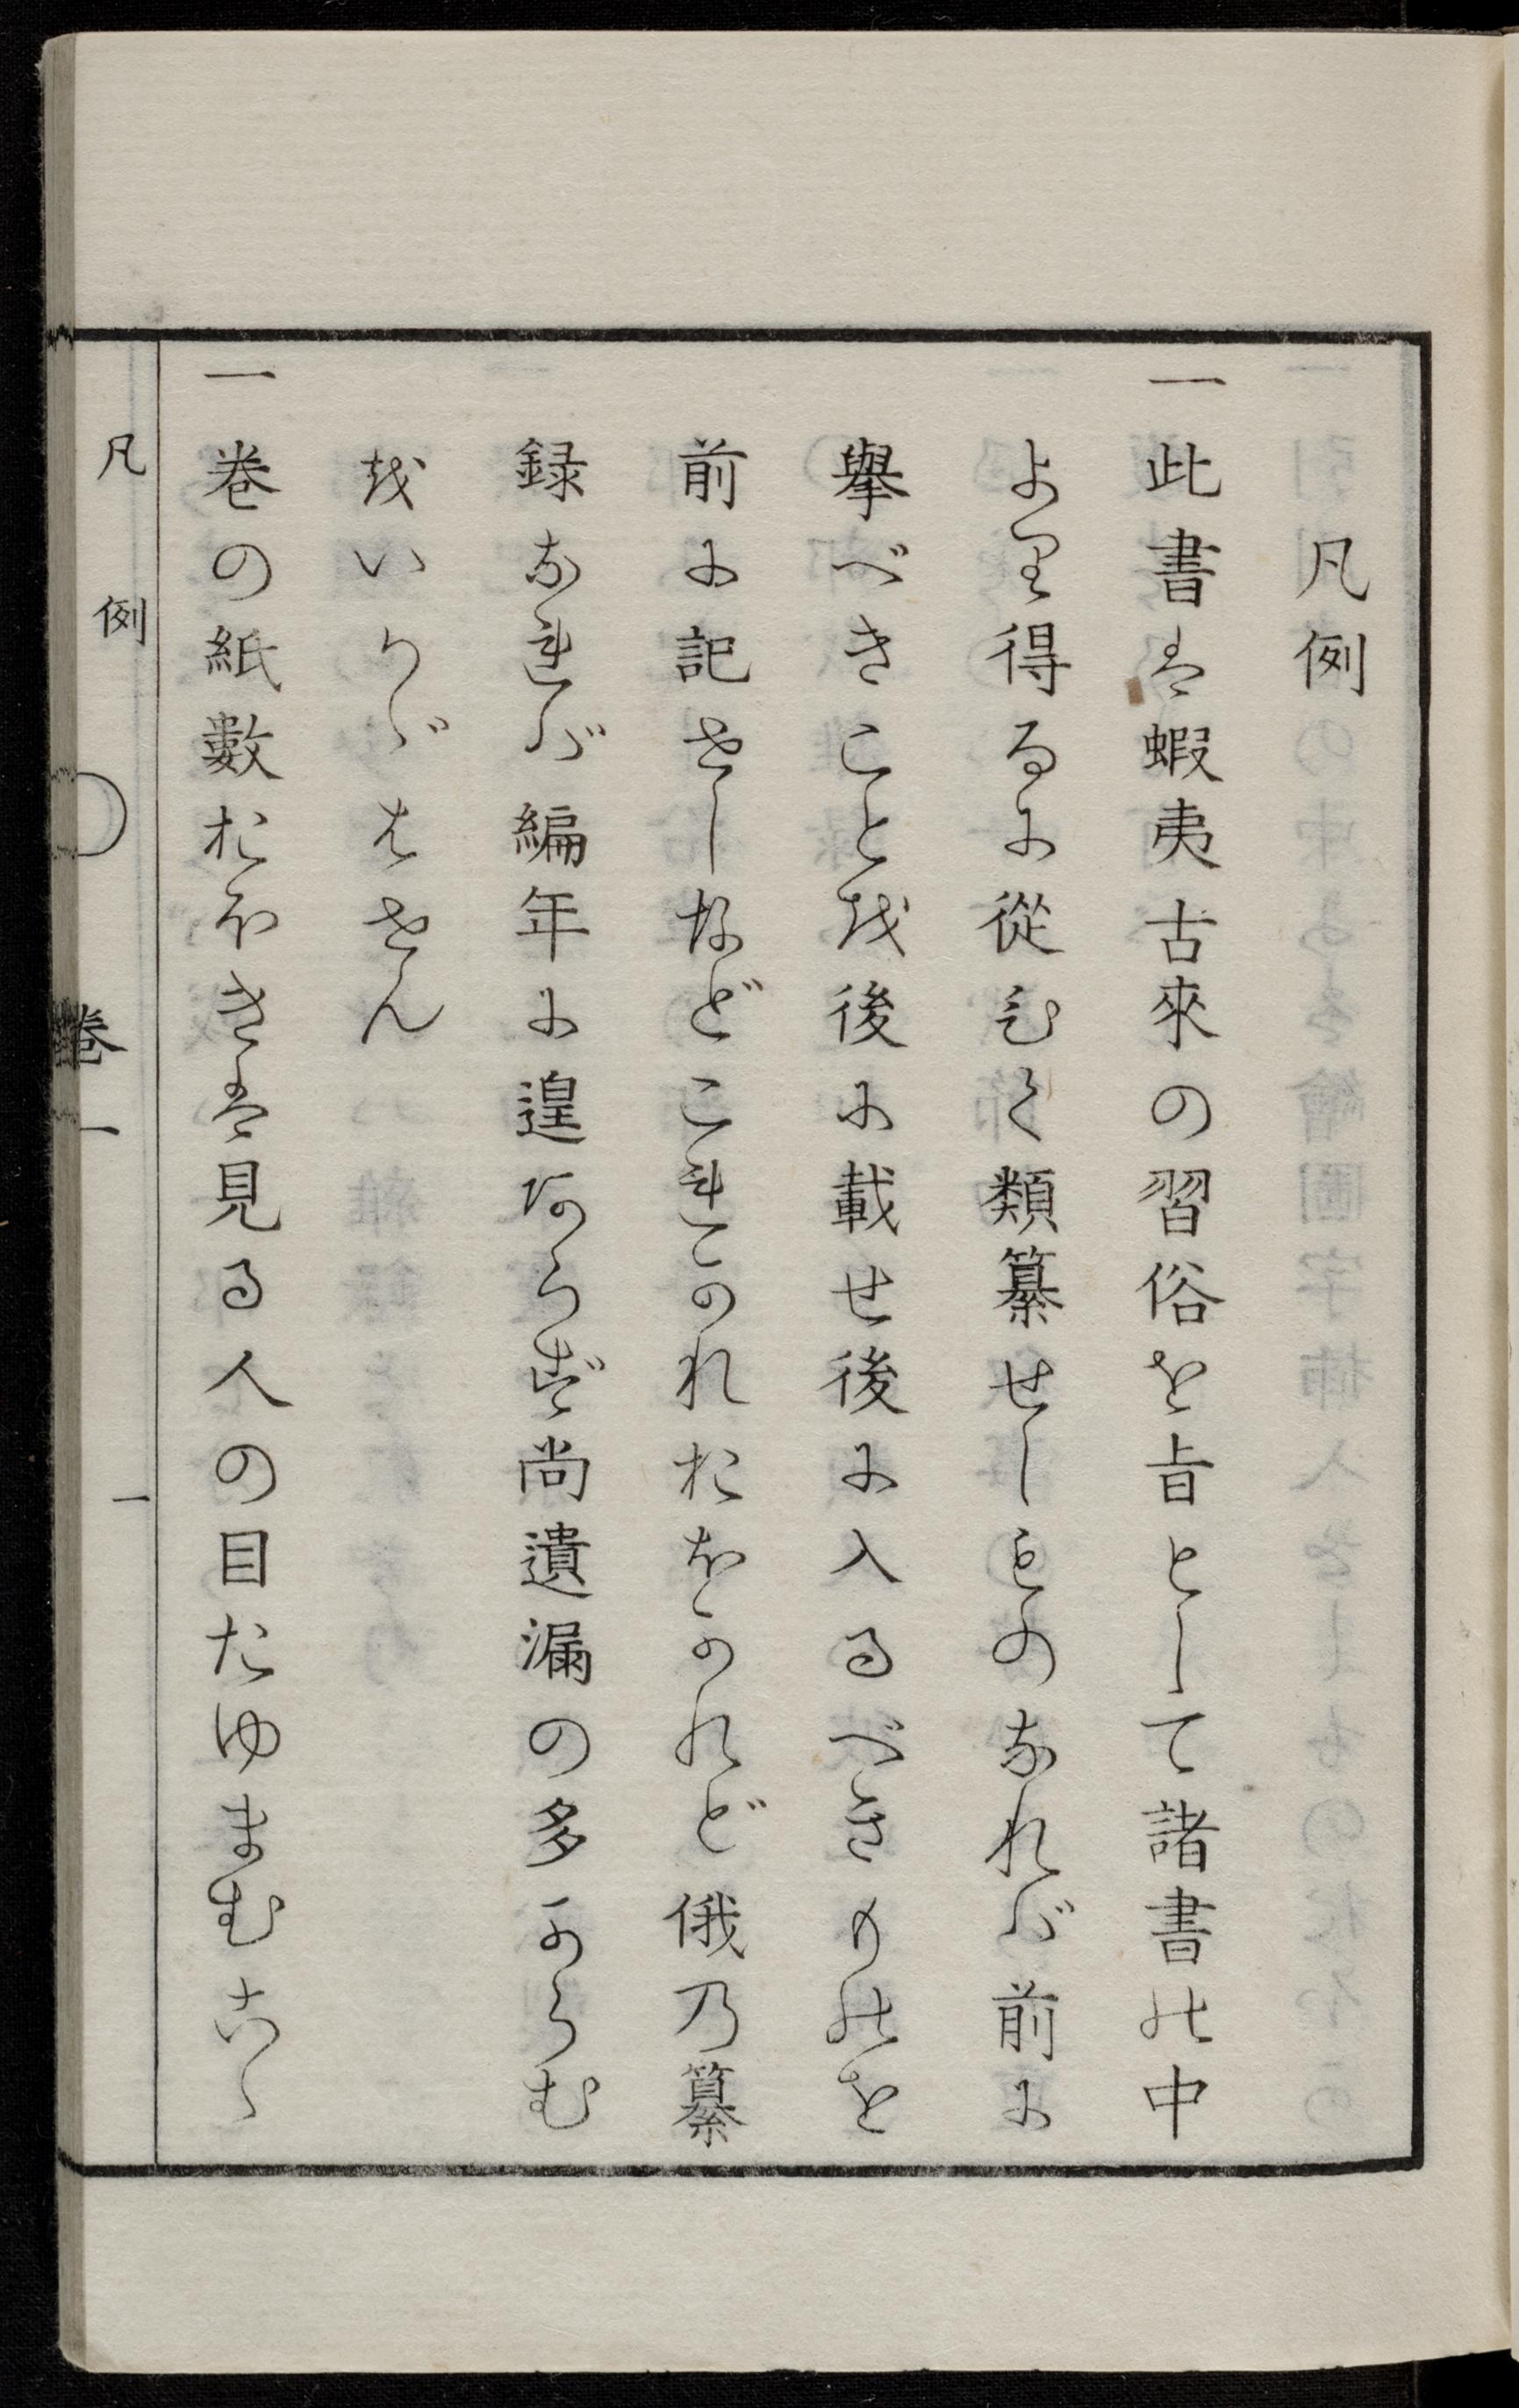 凡例
一此書は蝦夷古來の習俗を旨として諸書の中
より得るに從ひて類纂せしものなれば前に
擧べきことを後に載せ後に入るべきものを
前に記せしなどこれかれおほかれど俄乃纂
録なれば編年に遑あらず尚遺漏の多からむ
をいかゞはせん
一卷の紙數おほきは見る人の目たゆまむこゝ
凡例 卷一 一